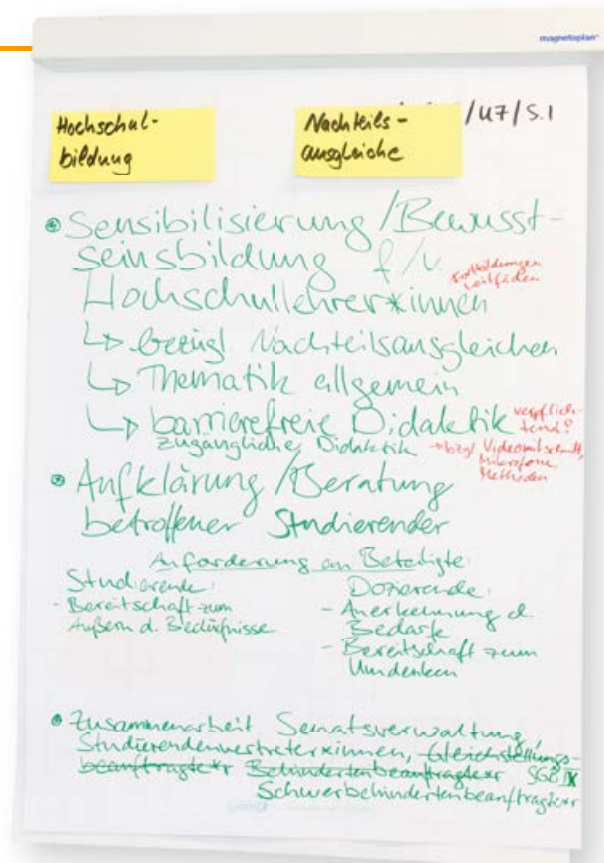 magnetoplan
Hochschul-
bildung
Nachteils-
ausgleiche
/U7/S.1
Sensibilisierung/Bewusst-
seinsbildung f/v.
Hochschullehrer*innen
Fortbildungen
Leitfäden
↳ bezügl Nachteilsausgleichen
↳ Thematik allgemein
↳ barrierefreie Didaktik
verpflich-
tend?
zugängliche Didaktik
→ bzgl Videomitschnitt,
Mikrofone,
Methoden
Aufklärung/Beratung
betroffener Studierender
Anforderung an Beteiligte:
Studierende:
- Bereitschaft zum
Äußern d. Bedürfnisse
Dozierende:
- Anerkennung d.
Bedarfe
- Bereitschaft zum
Umdenken
Zusammenarbeit Senatsverwaltung,
Studierendenvertreter*innen, Gleichstellungs-
beauftragte*r Behindertenbeauftragte*r SGB IX
Schwerbehindertenbeauftragte*r